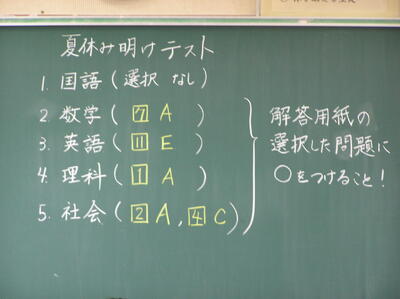 夏休み明けテスト
1. 国語(選択 なし)
2. 数学(7 A)
3. 英語(11 E)
4. 理科(1 A)
5. 社会(2 A, 4 C)
解答用紙の
選択した問題に
○をつけること!